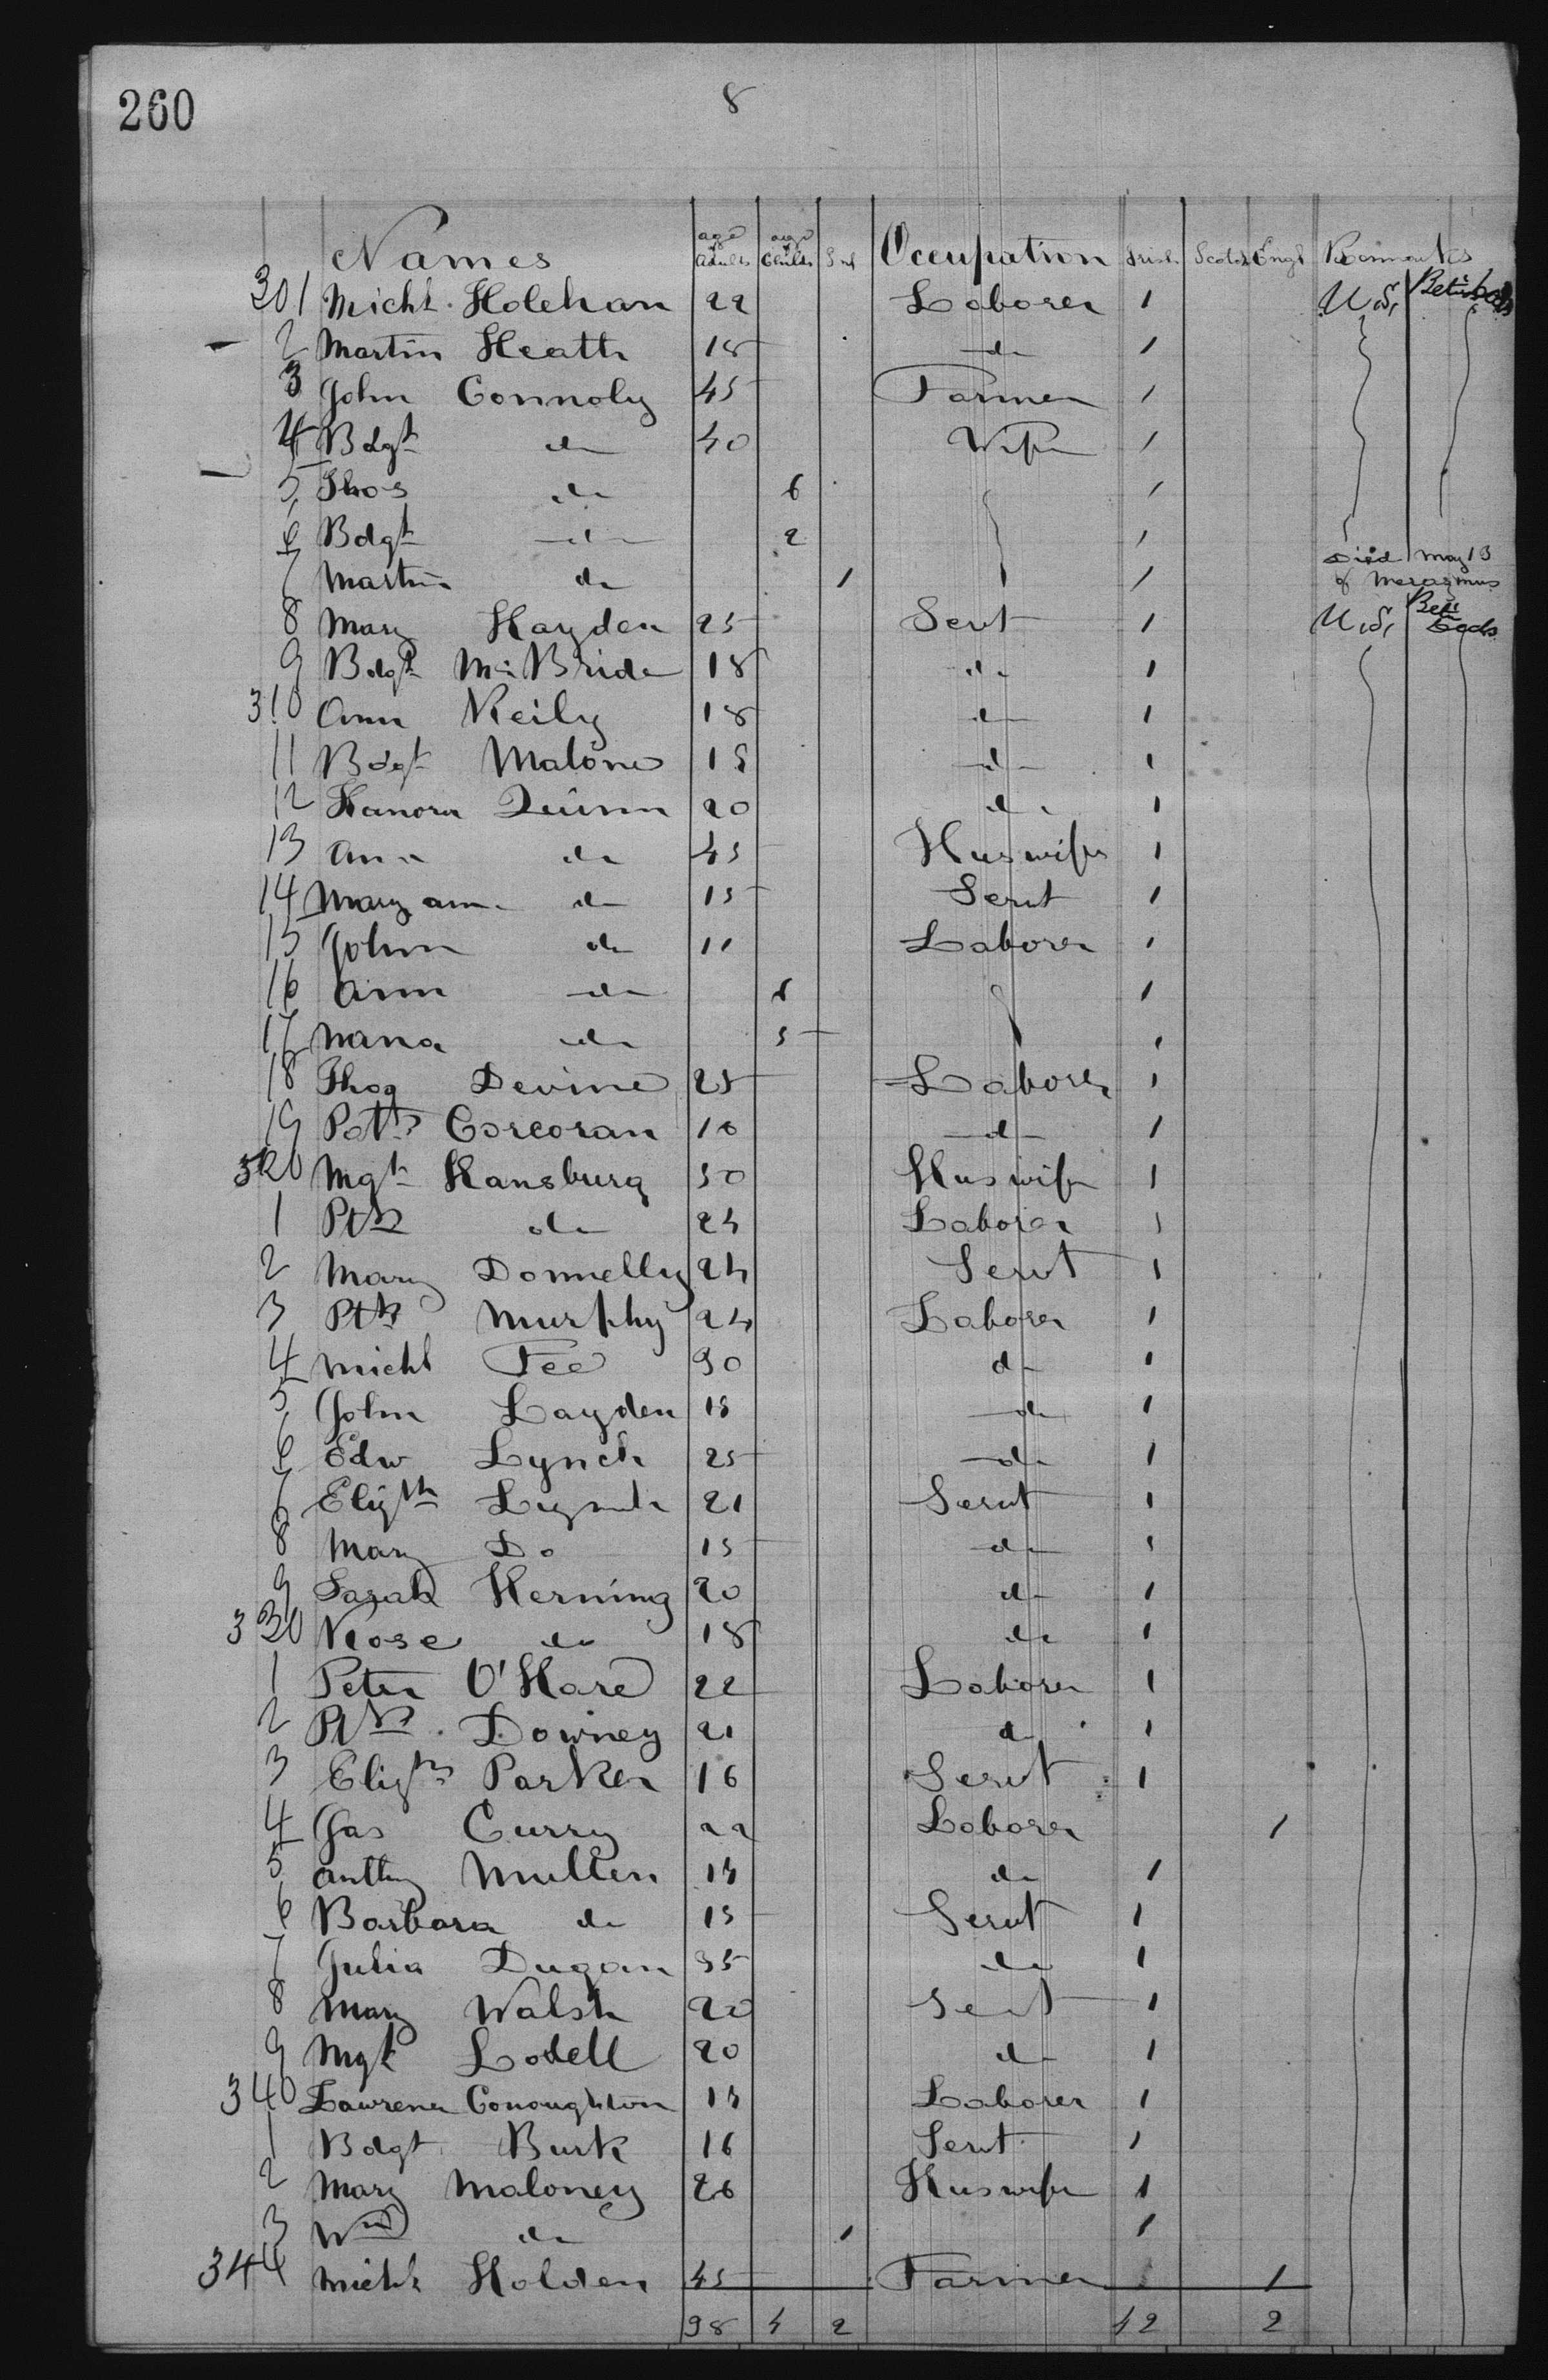 260
8
Names age Adults age Childn Inf Occupation Irish Scotch Engl Remarks
301 Michl. Holehan 22 Laborer 1 U.S. Betn decks
2 Martin Heath 18 do 1
3 John Connoly 45 Farmer 1
4 Bdgt do 40 Wife 1
5 Thos do 6 1
6 Bdgt do 2 1
7 Martin do 1 1 Died May 13 of Marasmus
8 Mary Hayden 25 Servt 1 U.S. Betn decks
9 Bdgt McBride 18 do 1
310 Ann Reily 18 do 1
11 Bdgt Malone 18 do 1
12 Hanora Quinn 20 do 1
13 Ann do 45 Huswife 1
14 Mary ann do 15 Servt 1
15 John do 11 Laborer 1
16 Ann do 8 1
17 Nana do 5 1
18 Thos Devine 25 Laborer 1
19 Patk Corcoran 18 do 1
320 Mgt Hansburg 50 Huswife 1
1 Ptk do 24 Laborer 1
2 Mary Donnelly 24 Servt 1
3 Ptk Murphy 24 Laborer 1
4 Michl Fee 30 do 1
5 John Layden 18 do 1
6 Edw Lynch 25 do 1
7 Elizth Lynch 21 Servt 1
8 Mary Do 15 do 1
9 Sarah Herning 20 do 1
330 Rose do 18 do 1
1 Peter O'Hare 22 Laborer 1
2 Ptk. Downey 21 do 1
3 Elizth Parker 16 Servt 1
4 Jas Curry 22 Laborer 1
5 Anthy Mullen 14 do 1
6 Barbara do 15 Servt 1
7 Julia Dugan 35 do 1
8 Mary Walsh 20 Servt 1
9 Mgt Lodell 20 do 1
340 Lawrence Conoughton 14 Laborer 1
1 Bdgt Burk 16 Servt 1
2 Mary Maloney 26 Huswife 1
3 Wm do 1 1
344 Michl Holden 45 Farmer 1
38 4 2 42 2